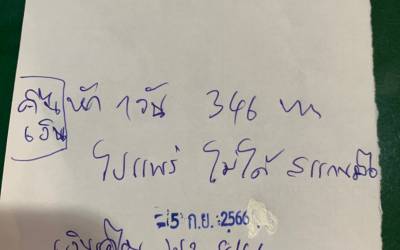 คืน หัก 1 วัน 346 บาท
เงิน
ไปแพร่ ไม่ได้ สแกนนิ้ว
-5 ก.ย. 2566